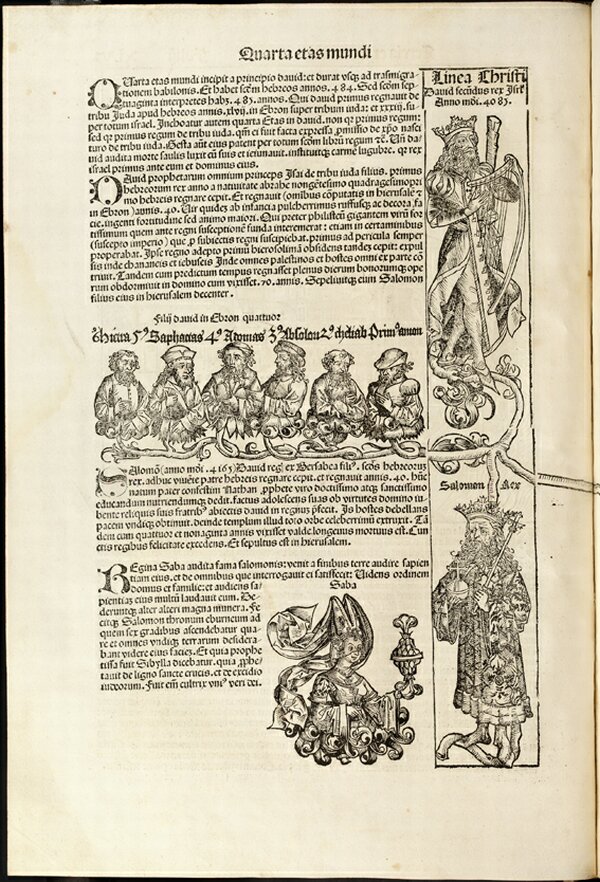 Quarta etas mundi
Linea Christi
David secūdus rex Isrł
Anno mōi. 4085.
QUarta etas mundi incipit a principio david: et durat vsq; ad trasmigra-
tionem babilonis. Et habet scđm hebreos annos. 484. Sed scđm sep-
tuaginta interpretes habz. 485. annos. Qui david primus regnavit de
tribu Juda apud hebreos annis. xlvij. in Ebron super tribum iuda: et xxxiij. su-
per totum israel. Inchoatur autem quarta Etas in david. non qr primus regum:
sed qr primus regum de tribu iuda. qm̄ ei fuit facta expressa ꝓmissio de xp̄o nasci
turo de tribu iuda. Gesta aūt eius patent per totum scđm librū regum ⁊c̄. Un̄ da-
vid audita morte saulis luxit eū suis et ieiunavit. instituitq; carmē lugubre. qr rex
israel primus ante eum et dominus eius.
DAuid prophetarum omnium princeps Isai de tribu iuda filius. primus
hebreorum rex anno a nativitate abrahe nongētesimo quadragesimopri
mo hebreis regnare cepit. Et regnavit (omnibus cōputatis in hierusalē ⁊
in Ebron) annis. 40. Vir quidēz ab infancia pulcherrimus ruffusq; ac decora. fa
cie. ingenti fortitudine sed animo maiori. Qui preter philisteū gigantem virū for
tissimum quem ante regni susceptionē funda interemerat: etiam in certaminibus
(suscepto imperio) que ꝓ subiectis regni suscipiebat. primus ad pericula semper
properabat. Ipse regno adepto primū hierosolimā obsidens tandēz cepit: expul
sis inde chananeis et iebuseis Inde omnes palestinos et hostes omni ex parte cō
truit. Tandem cum predictum tempus regnasset plenus dierum honorumq; ope
rum obdormiuit in domino cum vixisset. 70. annis. Sepeliuitq; eum Salomon
filius eius in hierusalem decenter.
Filij david in Ebron quattuor
5⁹ Saphacias 4⁹ Adonias 3⁹ Absolon 2⁹ cheliab Prim⁹ amon
SAlomō (anno mōi. 4165) David reḡ ex Bersabea fili⁹. scđs hebreoruz
rex. adhuc viuēte patre hebreis regnare cepit. et regnavit annis. 40. hūc
natum pater confestim Nathan ꝓphete viro doctissimo atq; sanctissimo
educandum nutriendumq; dedit. factus adolescens suas ob virtutes domino iu-
bente reliquis suis fratrib⁹ abiectis david in regnuz ꝓfecit. Is hostes debellans
pacem vndiq; obtinuit. deinde templum illud toto orbe celeberrimū extruxit. Tā
dem cum quattuor et nonaginta annis vixisset valde longeuus mortuus est. Cun
ctis regibus felicitate excedens. Et sepultus est in hierusalem.
Salomon Rex
REgina Saba audita fama salomonis: venit a finibus terre audire sapien
tiam eius. et de omnibus que interrogauit ei satisfecit: Uidens ordinem
domus et familie: et audiens sa-
pientiaz eius multū laudauit eum. De-
deruntq; alter alteri magna munera. Fe
citq; Salomon thronum eburneum ad
quem sex gradibus ascendebatur qua-
re et omnes vndiq; terrarum desidera
bant videre eius faciez. Et quia prophe
tissa fuit Sibylla dicebatur. quia ꝓphe-
tauit de ligno sancte crucis. et de excidio
iudeorum. Fuit em̄ cultrix vni⁹ veri dei.
Saba